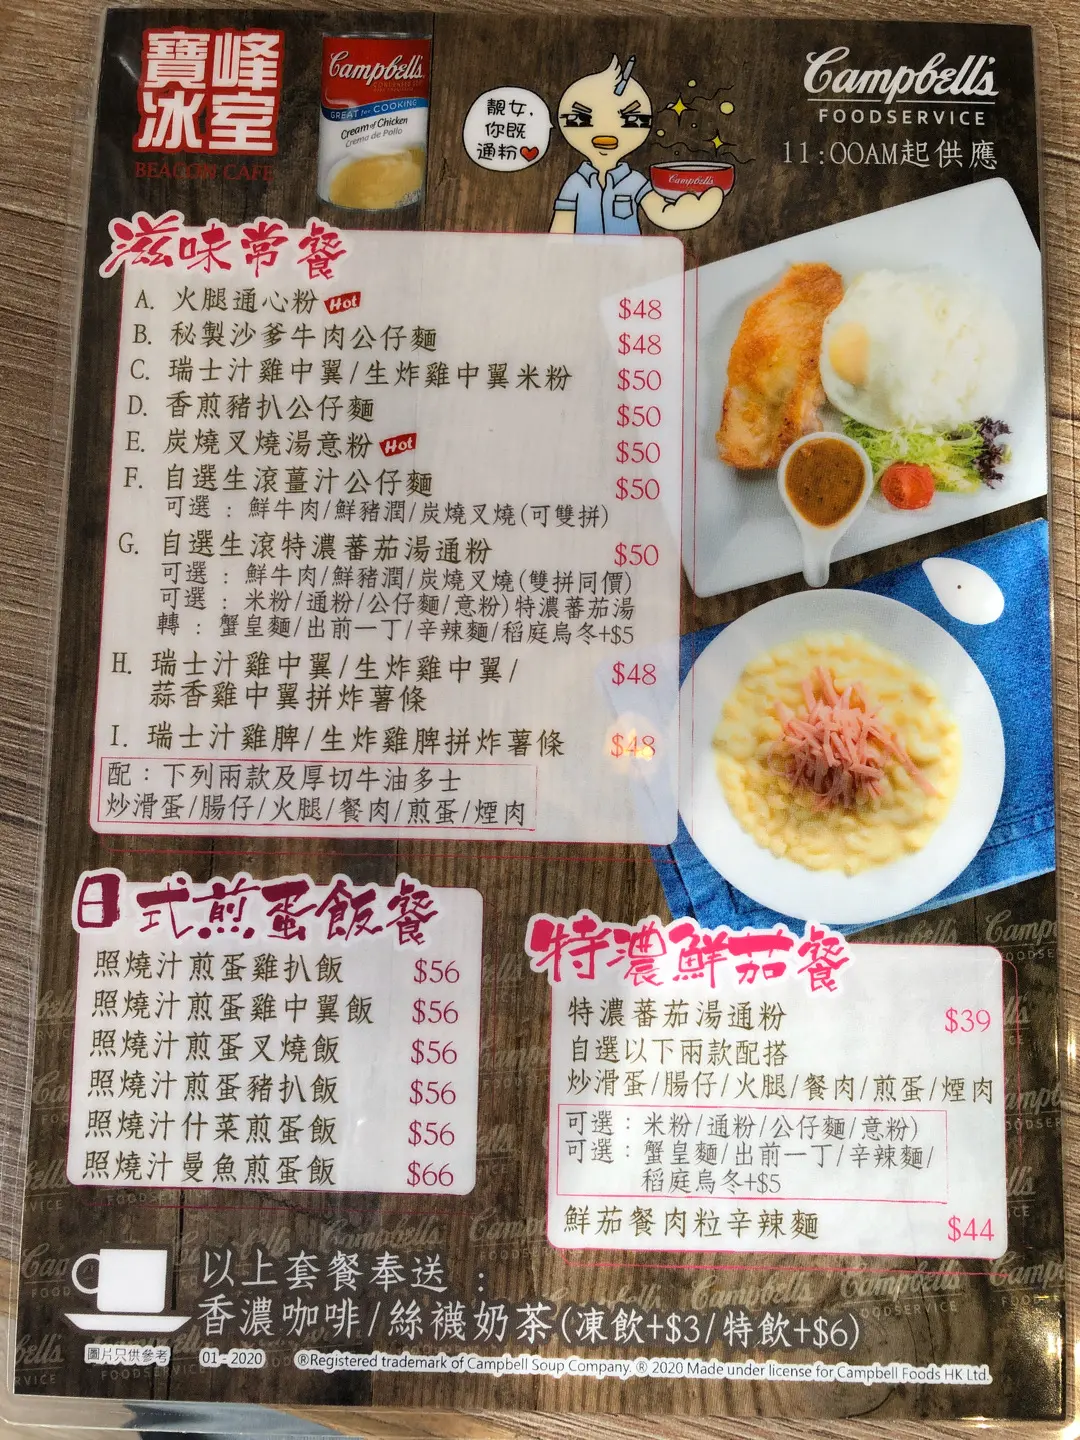 寶峰
冰室
BEACON CAFE
Campbell's
CONDENSED
GREAT for COOKING
Cream of Chicken
Crema de Pollo
靚女,
你既
通粉
Campbell's
Campbell's
FOODSERVICE
11:00AM起供應
滋味常餐
A. 火腿通心粉 Hot $48
B. 秘製沙爹牛肉公仔麵 $48
C. 瑞士汁雞中翼/生炸雞中翼米粉 $50
D. 香煎豬扒公仔麵 $50
E. 炭燒叉燒湯意粉 Hot $50
F. 自選生滾薑汁公仔麵 $50
可選 : 鮮牛肉/鮮豬潤/炭燒叉燒(可雙拼)
G. 自選生滾特濃蕃茄湯通粉 $50
可選 : 鮮牛肉/鮮豬潤/炭燒叉燒(雙拼同價)
可選 : 米粉/通粉/公仔麵/意粉)特濃蕃茄湯
轉 : 蟹皇麵/出前一丁/辛辣麵/稻庭烏冬+$5
H. 瑞士汁雞中翼/生炸雞中翼/ $48
蒜香雞中翼拼炸薯條
I. 瑞士汁雞脾/生炸雞脾拼炸薯條 $48
配 : 下列兩款及厚切牛油多士
炒滑蛋/腸仔/火腿/餐肉/煎蛋/煙肉
日式煎蛋飯餐
照燒汁煎蛋雞扒飯 $56
照燒汁煎蛋雞中翼飯 $56
照燒汁煎蛋叉燒飯 $56
照燒汁煎蛋豬扒飯 $56
照燒汁什菜煎蛋飯 $56
照燒汁曼魚煎蛋飯 $66
特濃鮮茄餐
特濃蕃茄湯通粉 $39
自選以下兩款配搭
炒滑蛋/腸仔/火腿/餐肉/煎蛋/煙肉
可選 : 米粉/通粉/公仔麵/意粉)
可選 : 蟹皇麵/出前一丁/辛辣麵/
稻庭烏冬+$5
鮮茄餐肉粒辛辣麵 $44
以上套餐奉送 :
香濃咖啡/絲襪奶茶(凍飲+$3/特飲+$6)
圖片只供參考 01 - 2020 ®Registered trademark of Campbell Soup Company. ® 2020 Made under license for Campbell Foods HK Ltd.